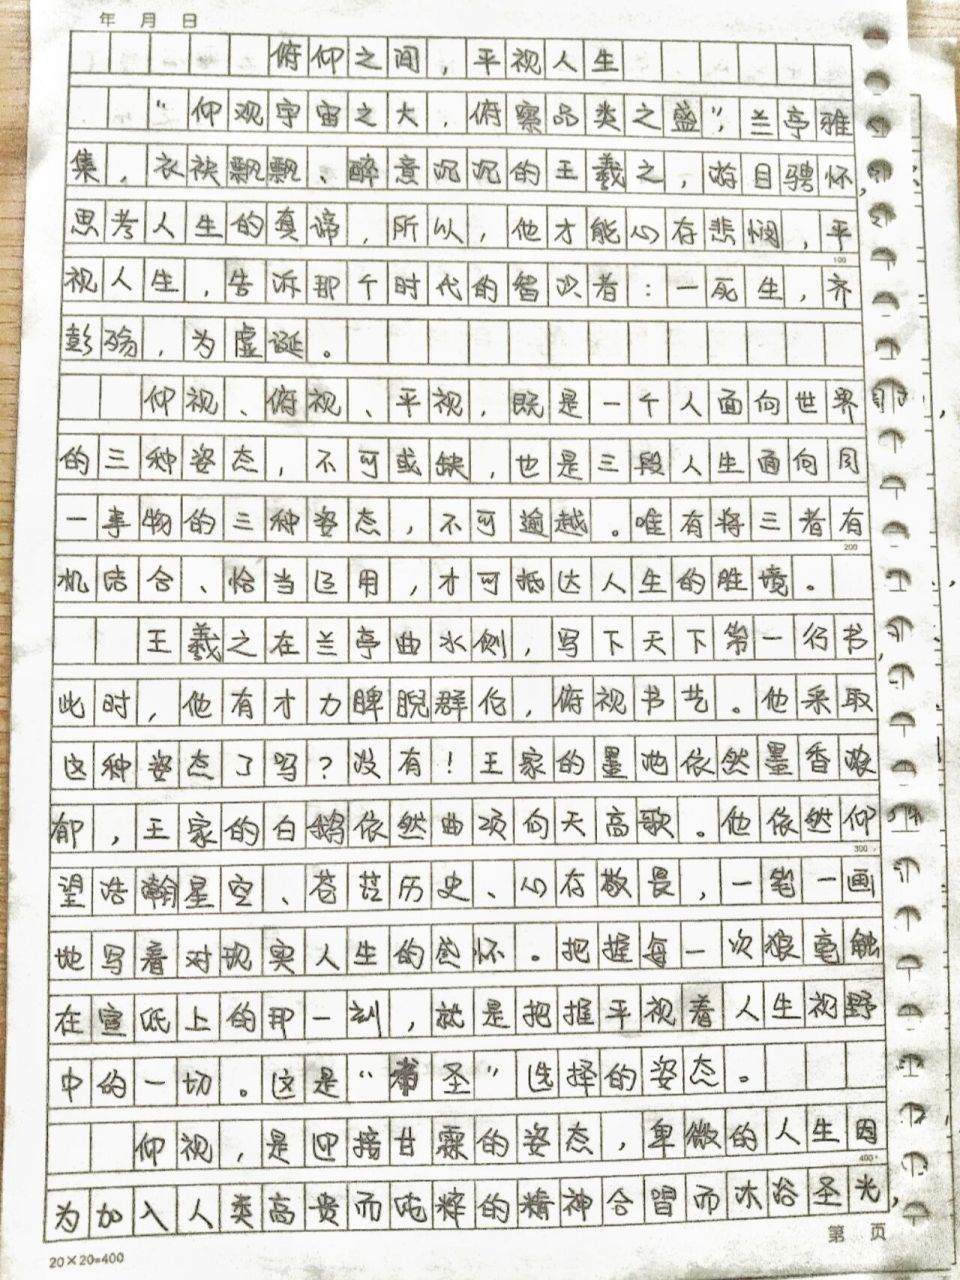 年 月 日
俯仰之间，平视人生
“仰观宇宙之大，俯察品类之盛”，兰亭雅
集，衣袂飘飘、醉意沉沉的王羲之，游目骋怀，
思考人生的真谛，所以，他才能心存悲悯，平
100
视人生，告诉那个时代的智识者：一死生，齐
彭殇，为虚诞。
仰视、俯视、平视，既是一个人面向世界
的三种姿态，不可或缺，也是三段人生面向同
一事物的三种姿态，不可逾越。唯有将三者有
200
机结合、恰当运用，才可抵达人生的胜境。
王羲之在兰亭曲水侧，写下天下第一行书，
此时，他有才力睥睨群伦，俯视书艺。他采取
这种姿态了吗？没有！王家的墨池依然墨香浓
郁，王家的白鹅依然曲项向天高歌。他依然仰
300
望浩瀚星空、苍茫历史、心存敬畏，一笔一画
地写着对现实人生的感怀。把握每一次狼毫触
在宣纸上的那一刻，就是把握平视着人生视野
中的一切。这是“书圣”选择的姿态。
仰视，是迎接甘霖的姿态，卑微的人生因
400
为加入人类高贵而纯粹的精神合唱而沐浴圣光，
第 页
20×20=400